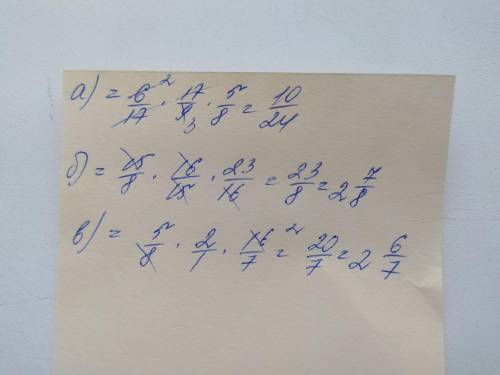 а) = 6/17 2 · 17/9 3 · 5/8 = 10/24
б) = 15/8 · 16/15 · 23/16 = 23/8 = 2 7/8
в) = 5/8 · 2/1 · 16/7 2 = 20/7 = 2 6/7